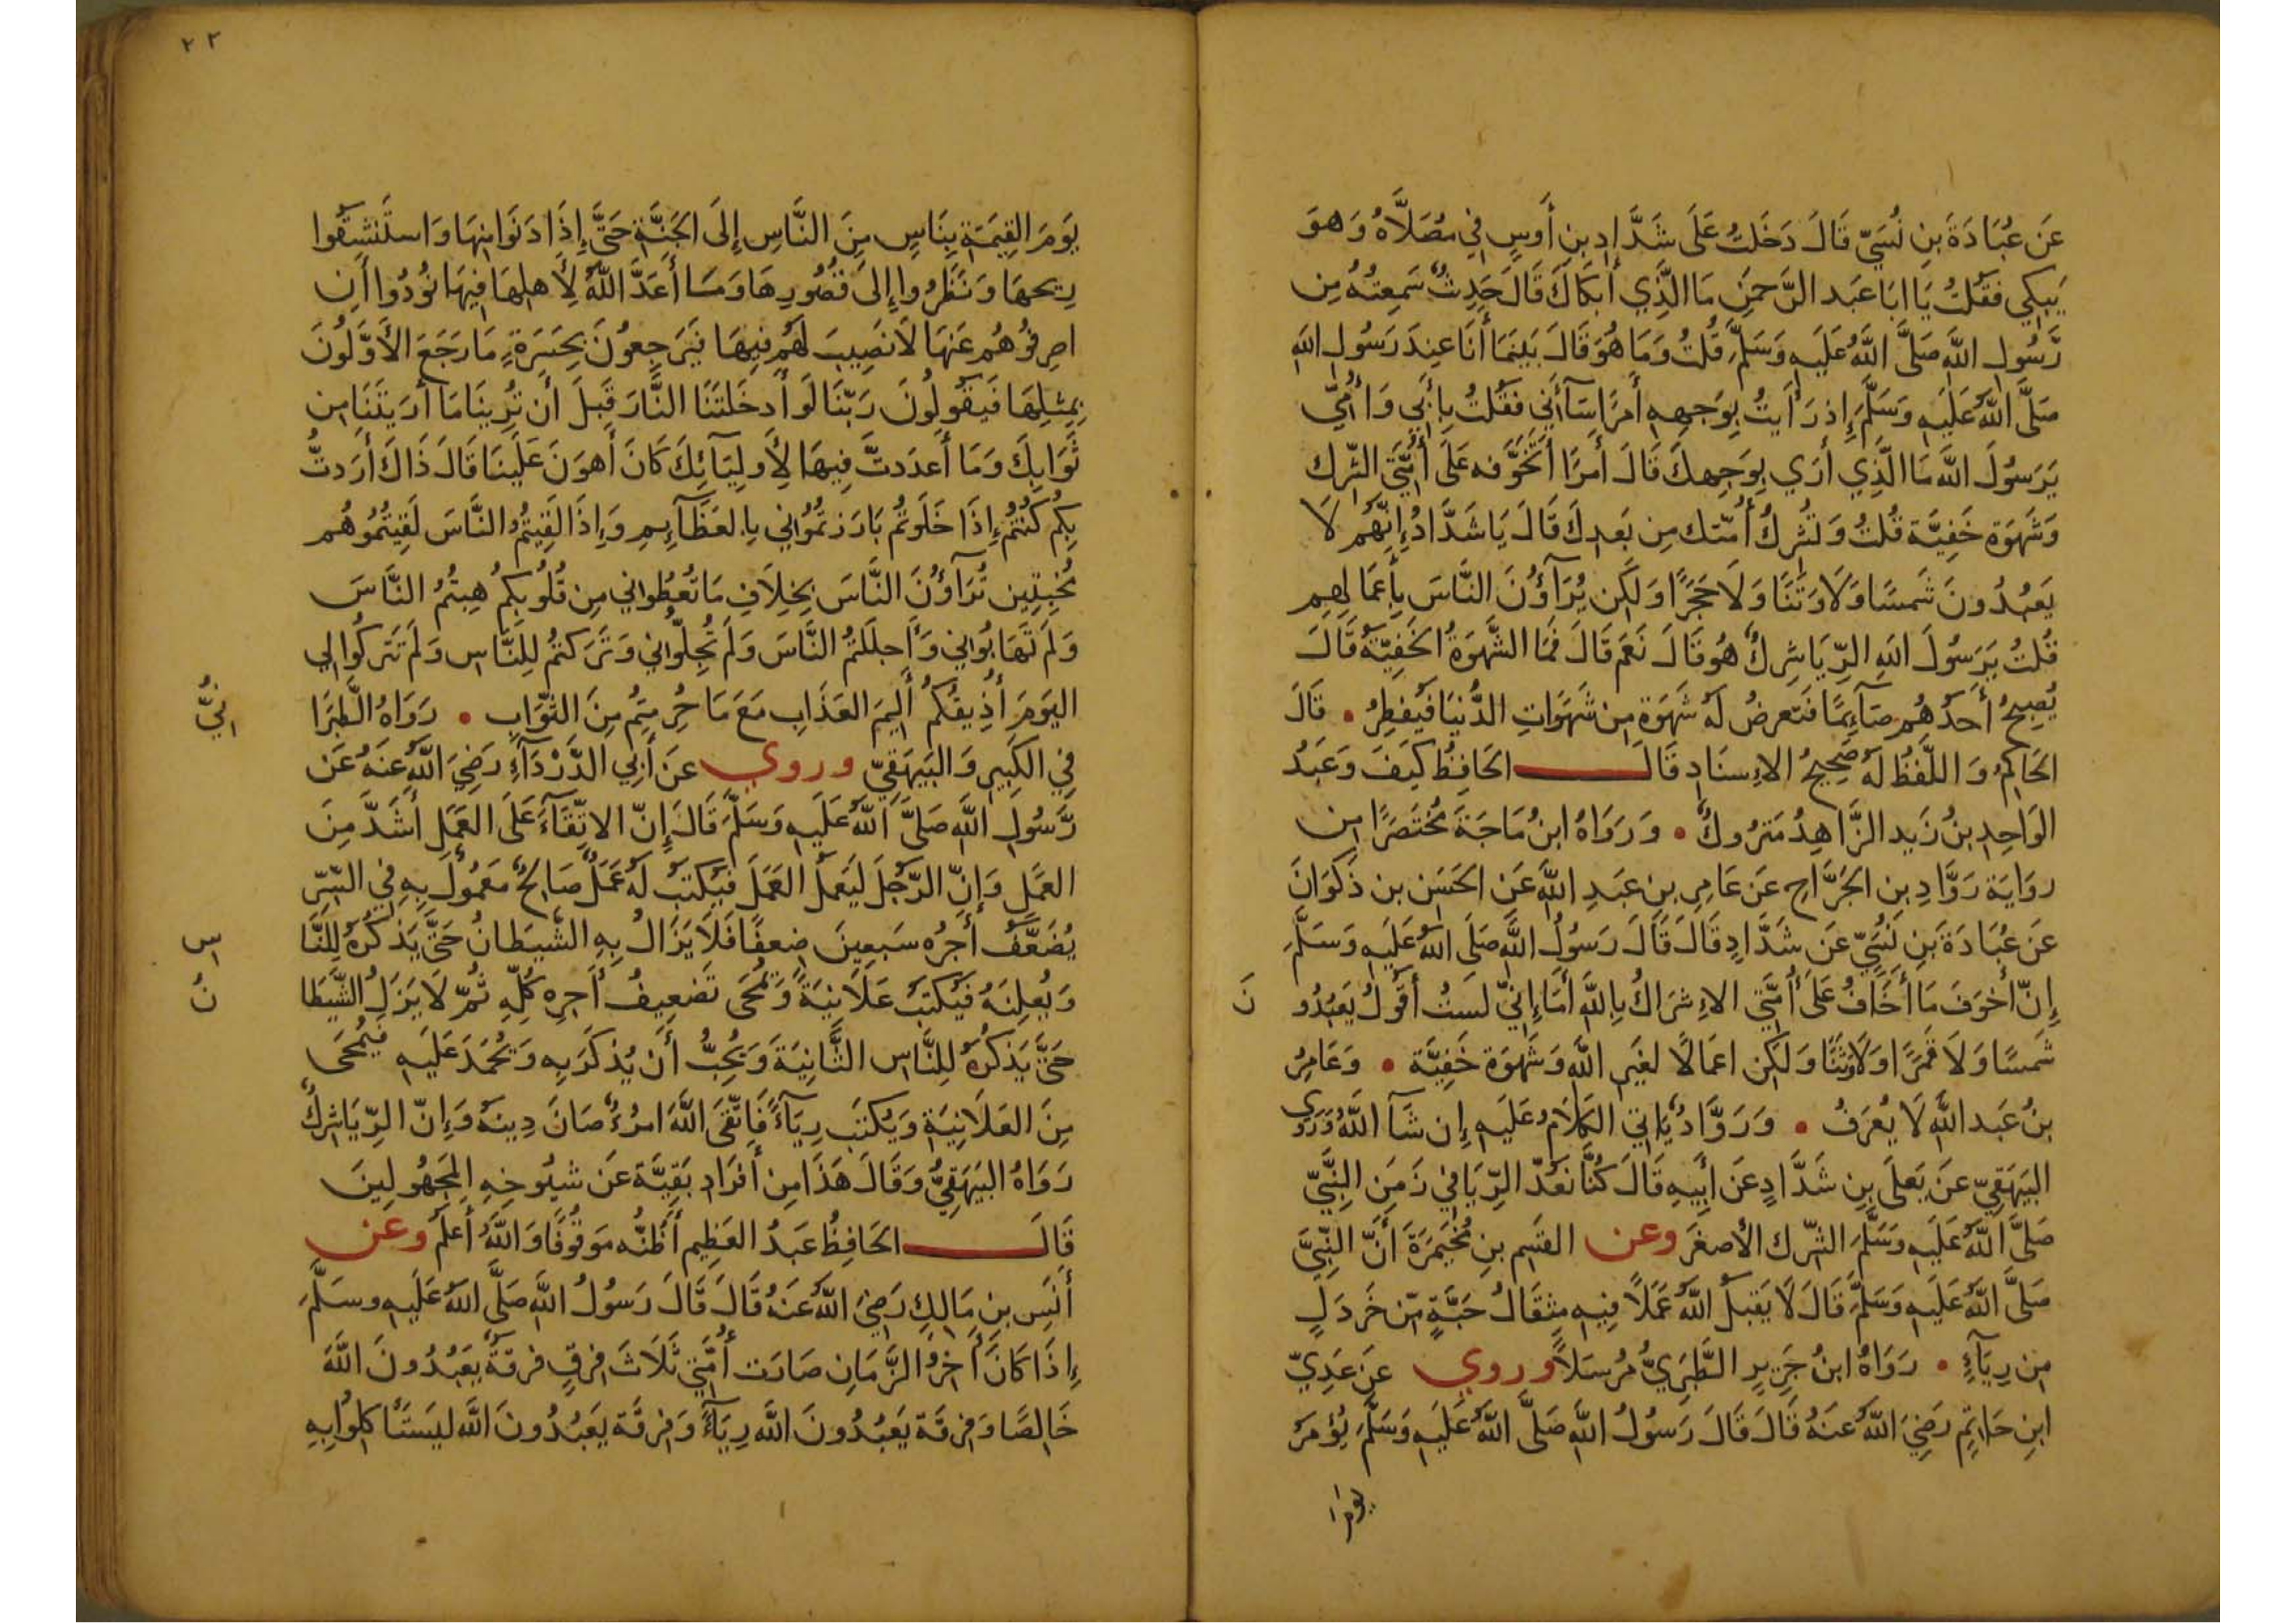 عَن عُبَادَةَ بنِ نُسَيّ قَالَ دَخَلتُ عَلَى شَدَّادِ بنِ أَوسٍ فِي مُصَلَّاهُ وَهوَ
يَبكِي فقُلتُ يَا ابَا عَبد الرَّحمَنِ مَا الَّذِي أَبكَاكَ قَالَ حَدِيثٌ سَمِعتُهُ مِن
رَّسُولِ اللَّه صَلَّى اللَّهُ عَلَيهِ وَسَلَّمَ قُلتُ وَمَا هُوَ قَالَ بَينَمَا أَنَا عِندَ رَسُولِ اللَّه
صَلَّى اللَّهُ عَلَيهِ وَسَلَّمَ إِذ رَأَيتُ بِوَجهِهِ أَمرًا سَآءَنِي فَقُلتُ بِأَبِي وَأُمِّي
يَرَسُولَ اللَّه مَا الَّذِي أَرَي بِوَجهِكَ قَالَ أَمرًا أَتَخَوَّفه عَلَى أُمَّتِي الشِّرك
وَشَهوَة خَفِيَّة قُلتُ وَتُشرِكُ أُمّتك مِن بَعدِكَ قَالَ يَا شَدَّادُ إِنَّهُم لَا
يَعبُدُونَ شَمسًا وَلَا وَثَنًا وَلَا حَجَرًا وَلَكِن يُرَآؤُنَ النَّاسَ بِأَعمَالِهِم
قُلتُ يَرَسُولَ اللَّهِ الرِّيَا شِركٌ هُو قَالَ نَعَم قَالَ فَمَا الشَّهوَةُ الخَفِيّةُ قَالَ
يُصبِحُ أَحَدُهُم صَآئِمًا فَتَعرِضُ لَهُ شَهوَة مِن شَهَوَاتِ الدُّنيَا فَيُفطِرُ • قَالَ
الحَاكِمُ وَاللَّفظُ لَهُ صَحِيحُ الاِسنَادِ قَالَ الحَافِظُ كَيفَ وَعَبدُ
الوَاحِدِ بنُ زَيد الزَّاهِدُ مَترُوكٌ • وَرَوَاهُ ابنُ مَاجَةَ مُختَصَرًا مِن
روَايَة رَوَّادِ بن الجَرَّاحِ عَن عَامِرِ بنِ عَبدِ اللَّه عَن الحَسَن بن ذَكوَانَ
عَن عُبَادَةَ بنِ نُسَيّ عَن شَدَّادٍ قَالَ قَالَ رَسُولُ اللَّه صَلَى اللَّهُ عَلَيهِ وَسَلَّمَ
إِنّ أَخوَفَ مَا أَخَافُ عَلَى أُمَّتِي الاِشرَاكُ بِاللَّه أَمَا إِنِّي لَستُ أَقُولُ يَعبُدُو
نَ
شَمسًا وَلَا قَمَرًا وَلَا وَثَنًا وَلَكِن اعمَالًا لغَيرِ اللَّه وَشَهوَة خَفِيَّة • وَعَامِرُ
بنُ عَبد اللَّه لَا يُعرَفُ • وَرَوَّادٌ يَاتِي الكَلَامُ عَلَيهِ إِن شَآ اللَّهُ وَرَوي
البَيهَقِيّ عَن يَعلَى بنِ شَدَّادٍ عَن أَبِيهِ قَالَ كُنَّا نعُدّ الرِّيَا فِي زَمَنِ النَّبِيّ
صَلَّى اللَّهُ عَلَيهِ وَسَلَّمَ الشّرك الأَصغَرَ وعن القسِم بنِ مُخَيمَرَةَ أَنَّ النَّبِيَّ
صَلَّى اللَّهُ عَلَيهِ وَسَلَّمَ قَالَ لَا يَقبَلُ اللَّهُ عَمَلًا فِيهِ مِثقَالُ حَبَّةٍ مّن خَردَلٍ
مِن رِيَآءٍ • رَوَاهُ ابنُ جَرِيرٍ الطَّبَرِيُّ مُرسَلًا وروي عَن عَدِيّ
ابنِ حَاتِمٍ رَضِيَ اللَّهُ عَنهُ قَالَ قَالَ رَسُولُ اللَّهِ صَلَّى اللَّهُ عَلَيهِ وَسَلَّمَ يُؤمَرُ
يَومَ
٢٢
يَومَ القِيَمَة بِنَاسٍ مِنَ النَّاسِ إِلَى الجَنَّةِ حَتَّى إِذَا دَنَوا مِنهَا وَاستَنشَقُوا
رِيحهَا وَنَظَرُوا إِلَى قُصُورِهَا وَمَا أَعَدَّ اللَّهُ لِأَهلِهَا فِيهَا نُودُوا أَن
اصرِفُوهُم عَنهَا لَا نَصِيبَ لَهُم فِيهَا فَيَرجِعُونَ بِحَسرَةٍ مَا رَجَعَ الأَوَّلُونَ
بِمِثلِهَا فَيَقُولُونَ رَبّنَا لَو أَدخَلتَنَا النَّارَ قَبلَ أَن تُرِينَا مَا أَرَيتَنَا مِن
ثَوَابِكَ وَمَا أَعدَدتَّ فِيهَا لِأَولِيَآئِكَ كَانَ أَهوَنَ عَلَينَا قَالَ ذَاكَ أَرَدتُّ
بِكُم كُنتُم إِذَا خَلَوتُم بَارَزتُمُوانِي بِالعَظَآئِمِ وَإِذَا لَقِيتُمُ النَّاسَ لَقِيتُمُوهُم
مُخبِتِين تُرَآؤُنَ النَّاسَ بِخِلَافِ مَا تُعطُوانِي مِن قُلُوبِكُم هِبتُمُ النَّاسَ
وَلَم تَهَابُوانِي وَأَجلَلتُمُ النَّاسَ وَلَم تُجِلُّوانِي وَتَرَكتُم لِلنَّاسِ وَلَم تَترُكُوا لِي
اليَومَ أُذِيقُكُم أَلِيمَ العَذَابِ مَعَ مَا حُرِمتُم مِنَ الثَّوَابِ • رَوَاهُ الطَّبَرَا
انِيُّ
فِي الكَبِيرِ وَالبَيهَقِيّ وروي عَن أَبِي الدَّرْدَآءِ رَضِيَ اللَّهُ عَنهُ عَن
رَّسُولِ اللَّه صَلَّى اللَّهُ عَلَيهِ وَسَلَّمَ قَالَ إِنّ الاتِّقَآءَ عَلَى العَمَلِ أَشَدَّ مِنَ
العَمَلِ وَإِنّ الرّجُلَ لَيَعمَلُ العَمَلَ فَيُكتَبُ لَهُ عَمَلٌ صَالِحٌ مَعمُولٌ بِهِ فِي السِّرّ
يُضَعَّفُ أَجرُه سَبعِينَ ضِعفًا فَلَا يَزَالُ بِهِ الشَّيطَانُ حَتَّى يَذكُرَهُ لِلنَّا
اسِ
وَيُعلِنَهُ فَيُكتَبُ عَلَانِيَةً وَيُمحَى تَضعِيفُ أَجرِه كُلِّهِ ثُمّ لَا يَزَلُ الشَّيطَا
نُ
حَتَّى يَذكُرَهُ لِلنَّاسِ الثَّانِيَةَ وَيُحِبُّ أَن يُذكَرَ بِهِ وَيُحمَدَ عَلَيهِ فيُمحَى
مِنَ العَلَانِيَةِ وَيُكتَبَ رِيَآءً فَاتَّقَى اللَّهَ امرُءٌ صَانَ دِينَهُ وَإِنّ الرِّيَا شِركٌ
رَوَاهُ البَيهَقِيُّ وَقَالَ هَذَا مِن أَفرَادِ بَقِيَّة عَن شيُوخِهِ المَجهُولِينَ
قَالَ الحَافِظُ عَبدُ العَظِيم أَظُنُّه مَوقُوفًا وَاللَّهُ أَعلَمُ وعن
أَنَسِ بنِ مَالِكٍ رَضِيَ اللَّهُ عَنهُ قَالَ قَالَ رَسُولُ اللَّه صَلَّى اللَّهُ عَلَيهِ وسَلَّمَ
إِذَا كَانَ أَخِرُ الزَّمَانِ صَارَت أُمَّتِي ثَلَاثَ فِرقٍ فرقَةٌ يَعبُدُونَ اللَّهَ
خَالِصًا وَفِرقَة يَعبُدُونَ اللَّه رِيَآءً وَفِرقَة يَعبُدُونَ اللَّه ليَستَأكِلُوا بِهِ